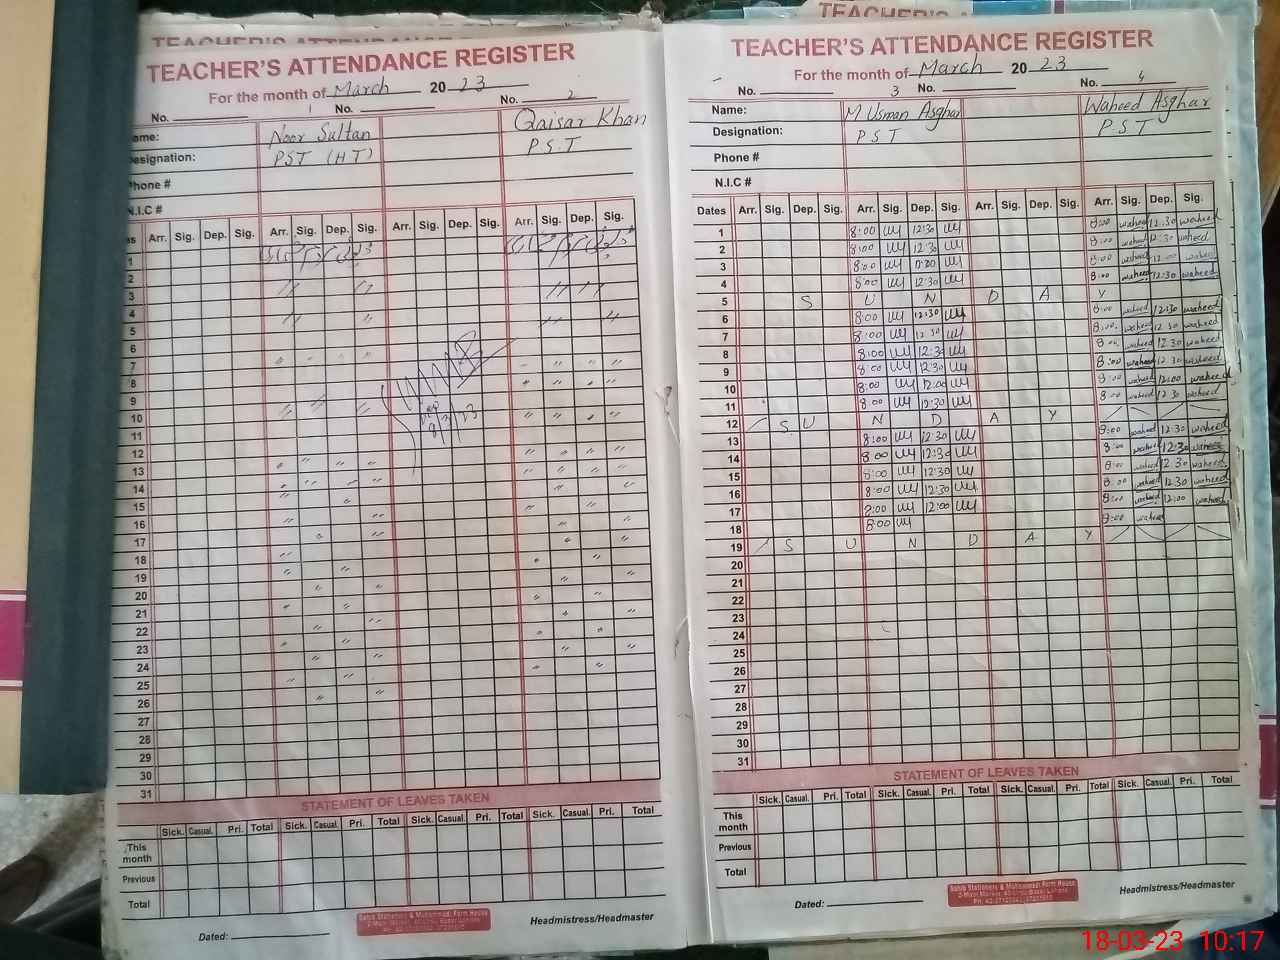 TEACHER'S ATTENDANCE REGISTER
For the month of March 20 23
No. 1 No.
No. 2
Name: Noor Sultan Qaisar Khan
Designation: PST (HT) P.S.T
Phone #
N.I.C #
Arr. Sig. Dep. Sig. Arr. Sig. Dep. Sig. Arr. Sig. Dep. Sig. Arr. Sig. Dep. Sig.
1
2
3
4
5
6
7
8
9
10
11
12
13
14
15
16
17
18
19
20
21
22
23
24
25
26
27
28
29
30
31
STATEMENT OF LEAVES TAKEN
Sick. Casual. Pri. Total Sick. Casual. Pri. Total Sick. Casual. Pri. Total Sick. Casual. Pri. Total
This month
Previous
Total
Headmistress/Headmaster
Dated:
TEACHER'S ATTENDANCE REGISTER
For the month of March 20 23
No. 3 No.
No. 4
Name: M Usman Asghar Waheed Asghar
Designation: P S T P S T
Phone #
N.I.C #
Dates Arr. Sig. Dep. Sig. Arr. Sig. Dep. Sig. Arr. Sig. Dep. Sig. Arr. Sig. Dep. Sig.
1 8:00 12:30 8:00 waheed 12:30 waheed
2 8:00 12:30 8:00 waheed 12:30 waheed
3 8:00 8:00 waheed 12:00 waheed
4 8:00 12:30 8:00 waheed 12:30 waheed
5 S U N D A Y
6 8:00 12:30 8:00 waheed 12:30 waheed
7 8:00 12:30 8:00 waheed 12:30 waheed
8 8:00 12:30 8:00 waheed 12:30 waheed
9 8:00 12:30 8:00 waheed 12:30 waheed
10 8:00 12:00 8:00 waheed 12:00 waheed
11 8:00 12:30 8:00 waheed 12:30 waheed
12 S U N D A Y
13 8:00 12:30 8:00 waheed 12:30 waheed
14 8:00 12:30 8:00 waheed 12:30 waheed
15 8:00 12:30 8:00 waheed 12:30 waheed
16 8:00 12:30 8:00 waheed 12:30 waheed
17 8:00 12:00 8:00 waheed 12:00 waheed
18 8:00 8:00 waheed
19 S U N D A Y
20
21
22
23
24
25
26
27
28
29
30
31
STATEMENT OF LEAVES TAKEN
Sick. Casual. Pri. Total Sick. Casual. Pri. Total Sick. Casual. Pri. Total Sick. Casual. Pri. Total
This month
Previous
Total
Headmistress/Headmaster
Dated:
18-03-23 10:17